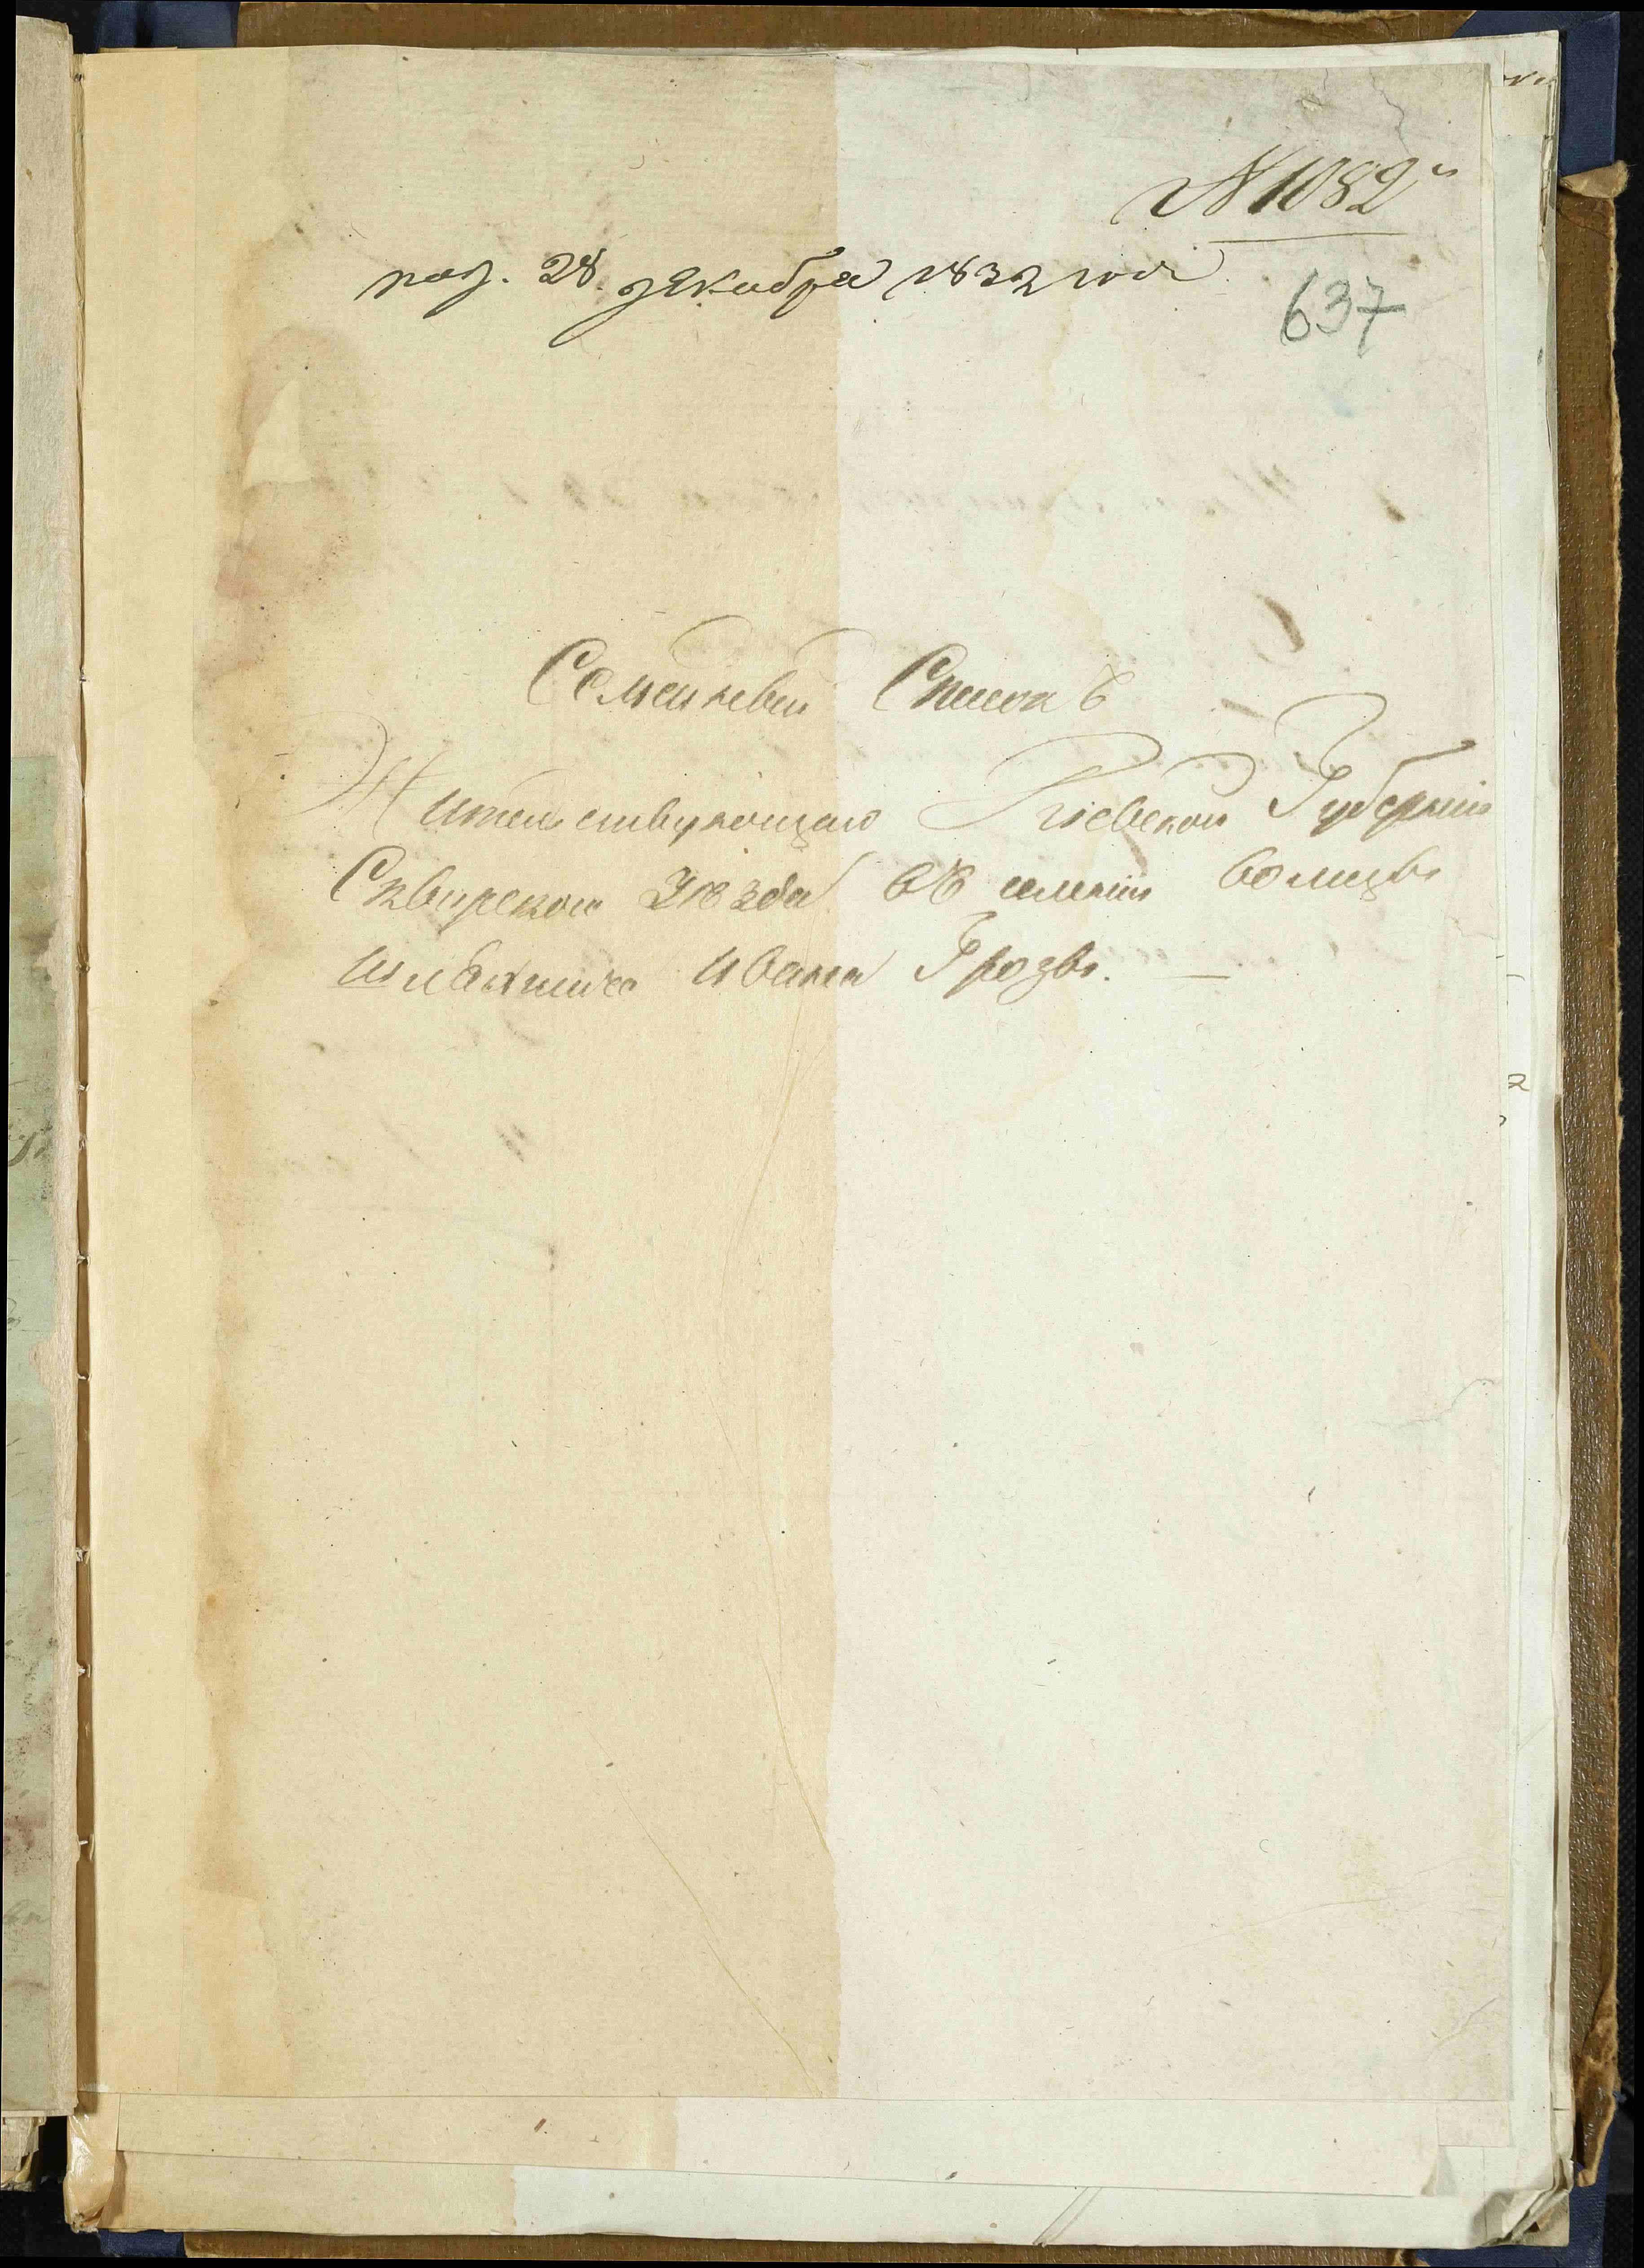 № 1082й
раз. 28. декабря 1832 года
637
Семейный Списокъ
Жительствующаго Кіевской Губерніи
Сквирскаго Уѣзда въ селеніи Волицѣ
шляхтича Ивана Грозы. —